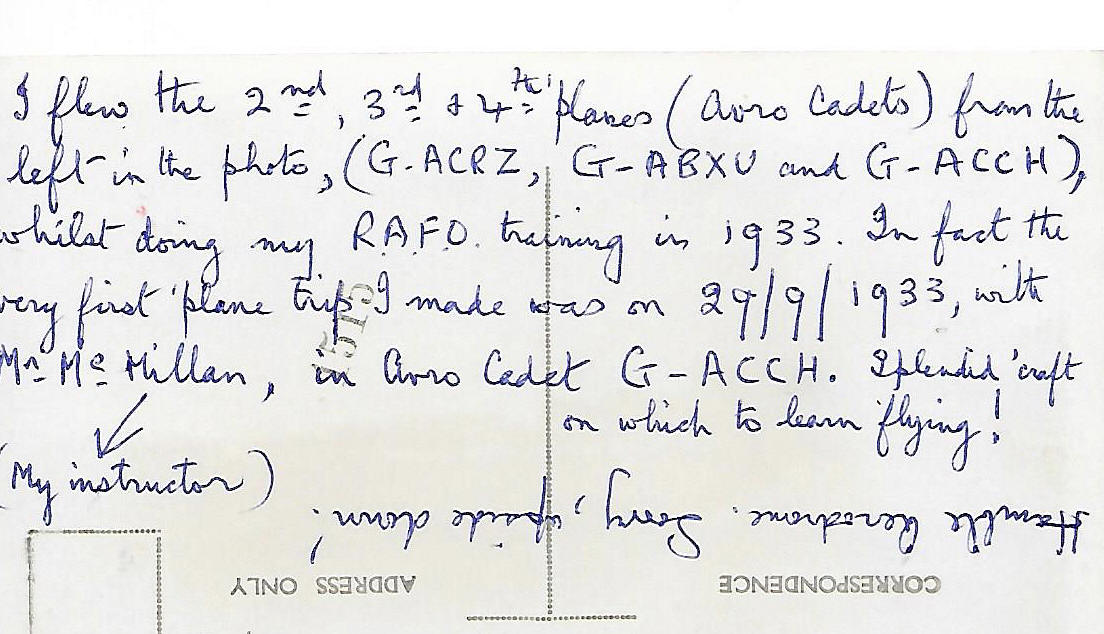 I flew the 2nd, 3rd & 4th 'planes (Avro Cadets) from the
left in the photo, (G-ACRZ, G-ABXU and G-ACCH),
whilst doing my R.A.F.O. training in 1933. In fact the
very first 'plane trip I made was on 29/9/1933, with
Mr. Mc Millan, in Avro Cadet G-ACCH. Splendid 'craft
on which to learn flying!
(My instructor)
Hamble Aerodrome. Sorry, upside down!
CORRESPONDENCE
ADDRESS ONLY